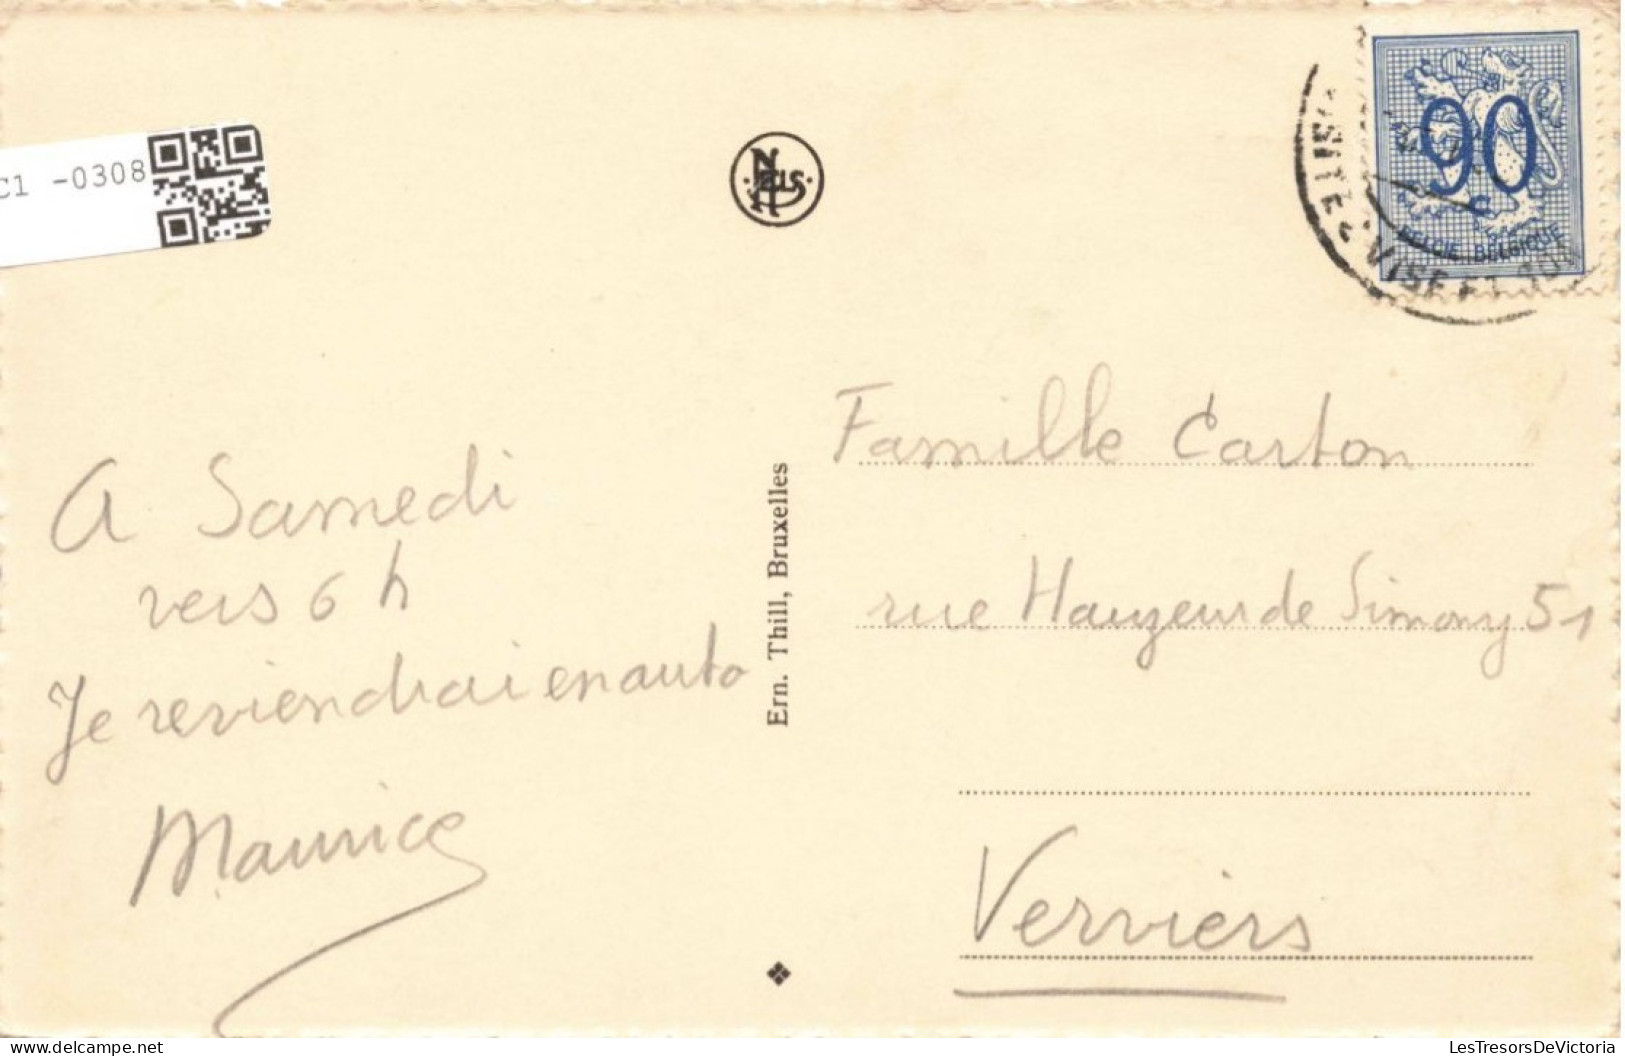 C1 -0308
NELS
90
C
BELGIE BELGIQUE
VISITE
VISE ET
A Samedi
vers 6 h
Je reviendrai en auto
Maurice
Ern. Thill, Bruxelles
Famille Carton
rue Hauzeur de Simony 51
Verviers
LesTresorsDeVictoria
delcampe.net